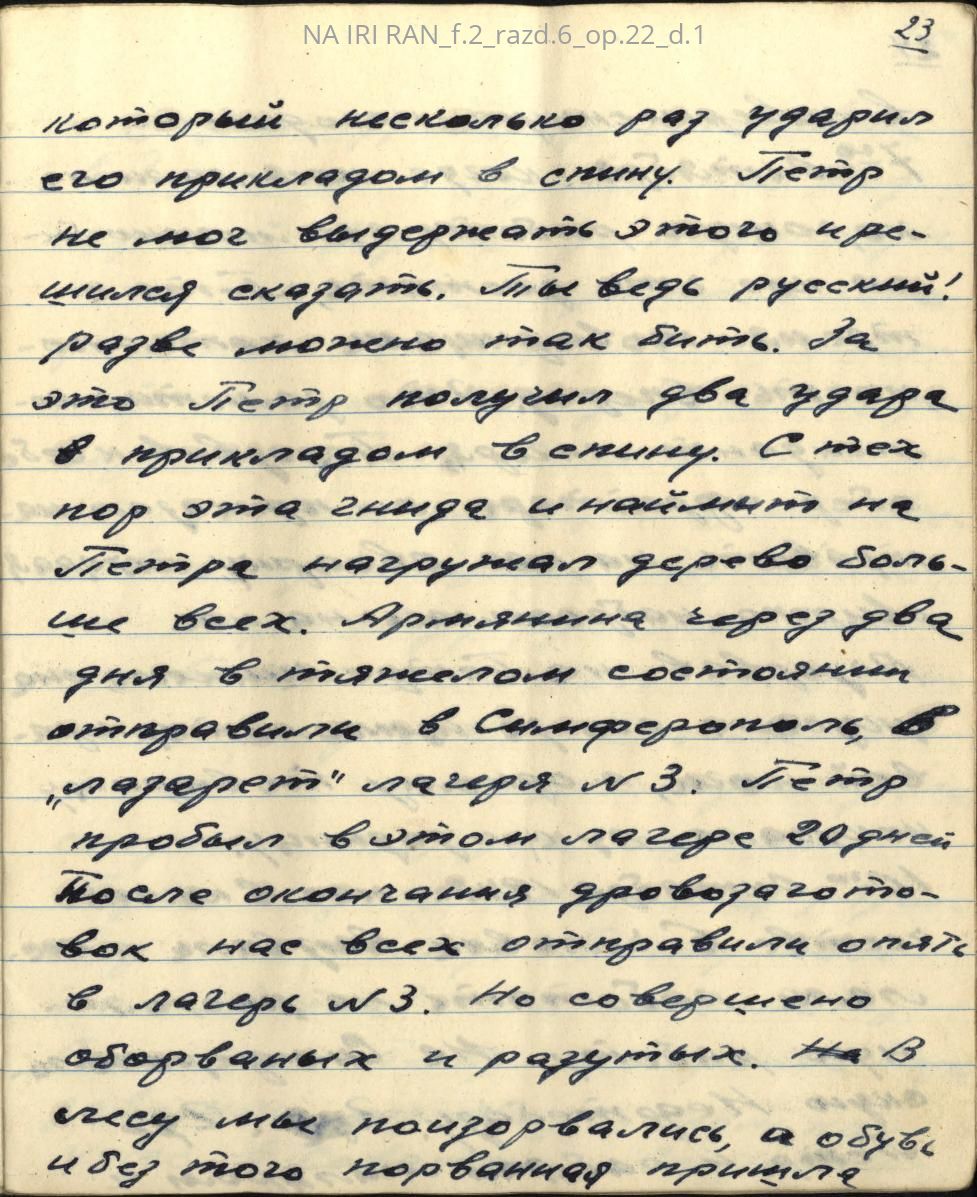 NA IRI RAN_f.2_razd.6_op.22_d.1
23
который несколько раз ударил
его прикладом в спину. Петр
не мог выдержать этого и ре-
шился сказать. Ты ведь русский!
разве можно так бить. За
это Петр получил два удара
прикладом в спину. С тех
пор эта гнида и наймит на
Петра нагружал дерево боль-
ше всех. Армянина через два
дня в тяжелом состоянии
отправили в Симферополь, в
„лазарет" лагеря N 3. Петр
пробыл в этом лагере 20 дней
После окончания дровозагото-
вок нас всех отправили опять
в лагерь N 3. Но совершено
оборваных и разутых. На В
лесу мы поизорвались, а обувь
и без того порванная пришла